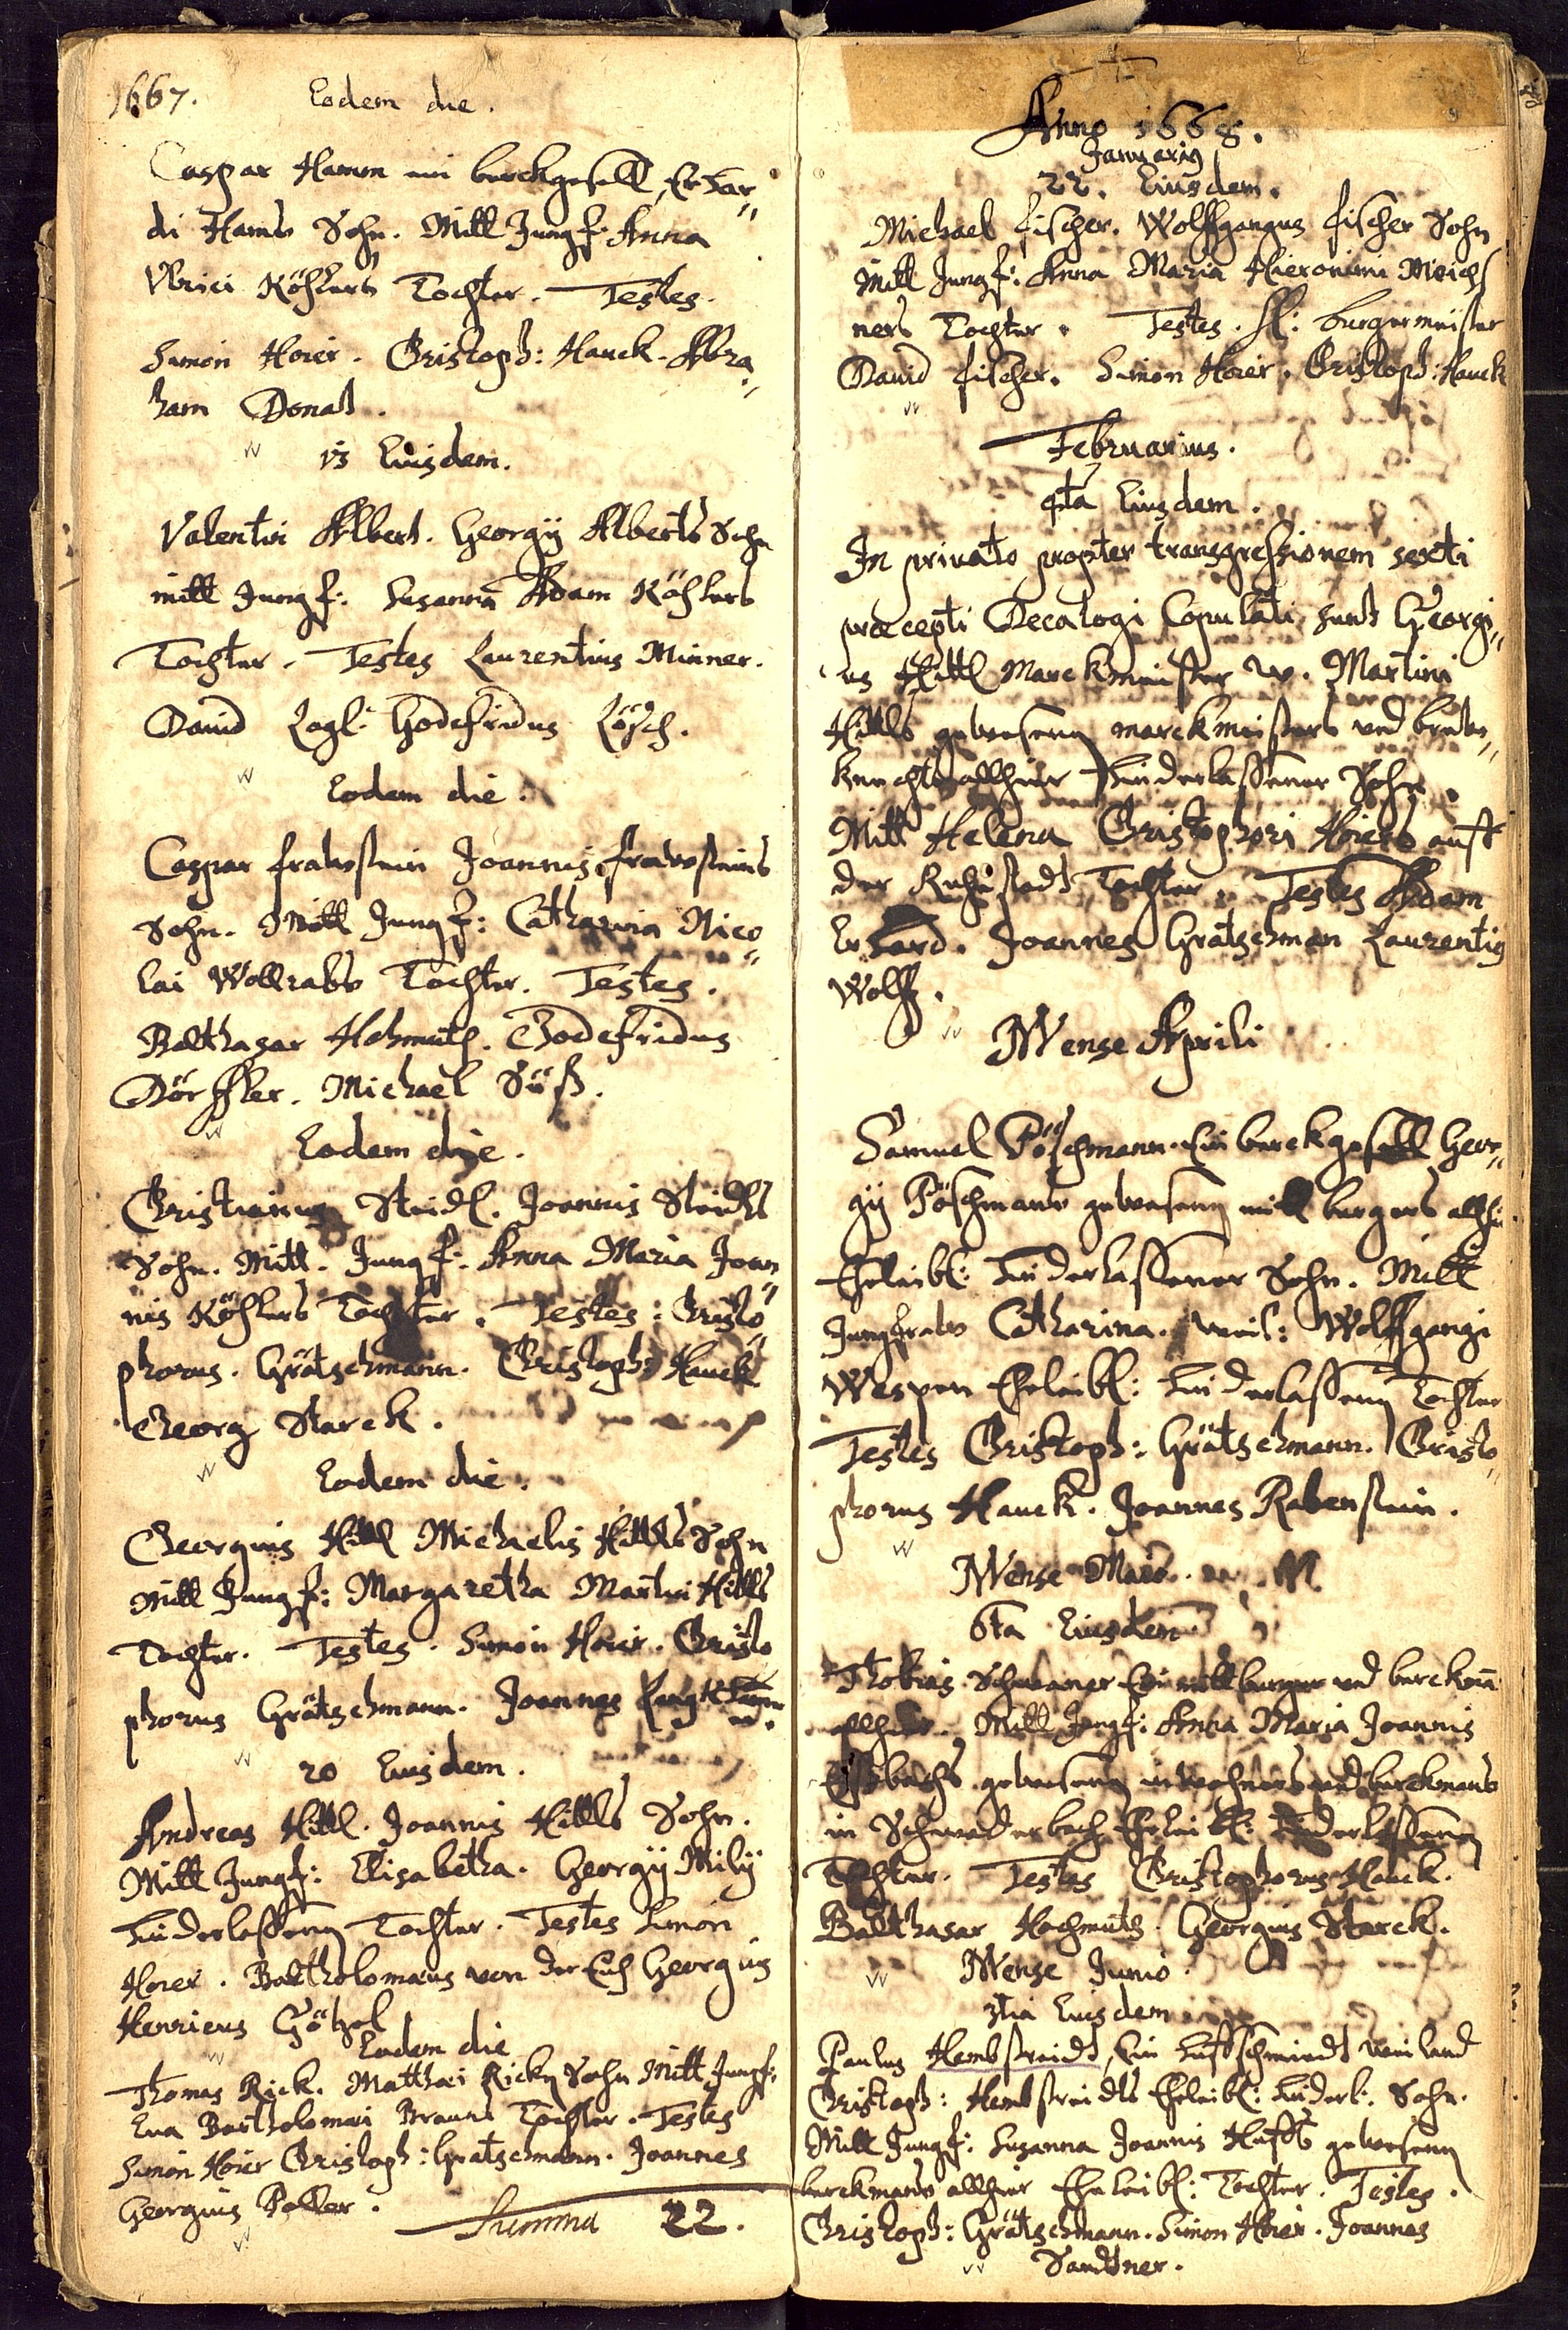 1667. Eodem die.
Caspar Hamm ein berckgesell, Erhar„
di Hams Sohn. Mitt Jungf. Anna
Vlrici Köhlers Tochter. Testes.
Simon Hoier. Christoph: Hauck. Abra„
ham Donat.
13 Eiusdem.
Valentin Albert. Georgÿ Alberts Sohn
mitt Jungf: Susanna Adam Köhlers
Tochter. Testes Laurentius Minner.
Dauid Logl. Godefridus Lösch.
Eodem die.
Caspar frawstein Joannis frawsteins
Sohn. Mitt Jungf: Catharina Nico„
lai Wollrabs Tochter. Testes.
Balthasar Hohmuth. Godefridus
Dörffler. Michael Süß.
Eodem die.
Christianus Steidl. Joannis Steidls
Sohn. Mitt. Jungf. Anna Maria Joan„
nis Köhlers Tochter. Testes: Christo„
phorus. Grätschmann. Christoph: Hauck
Georg Starck.
Eodem die.
Georgius Hittl Michaelis Hittls Sohn
Mitt Jungf: Margaretha Martini Hittls
Tochter. Testes. Simon Hoier. Christo
phorus Grätschmann. Joannes
20 Eiusdem.
Andreas Hittl. Joannis Hittls Sohn.
Mitt Jungf: Elisabetha. Georgÿ Milÿ
hinderlassenen Tochter. Testes Simon
Hoier. Bartholomæus von der Eich Georgius
Henricus Götzel
Eodem die
Thomas Rick. Matthæi Ricken Sohn Mitt Jungf:
Eua Bartholomæi Brauns Tochter. Testes
Simon Hoier Christoph: Gratschmann. Joannes
Georgius Poller.
Summa 22.
Anno 1668.
Januariȝ
22. Eiusdem.
Michael fischer. Wolffgangus fischer Sohn
Mitt Jungf: Anna Maria Hieronimi Meich
ners Tochter. Testes. H: burgermeister
Dauid fischer. Simon Hoier. Christoph: Hauck
Februarius.
4ta Eiusdem.
In priuato propter transgressionem sexti
præcepti Decalogi Copulati sunt Georgi„
us Hittl Marckmeister w. Martini
Hittls gewesenen marckmeisters und
knechts allhier hinderlassener Sohn.
Mitt Helena Christophori Hoiers auff
der Tochter. Testes Adam
Erhard. Joannes Grätschman Laurentiȝ
Wolff.
Mense Aprili
Samuel Pöschmann. Ein berckgesell Geor„
gÿ Pöschmans gewesenen mitt burgers allhie
Eheleibl: hinderlassener Sohn. Mitt
Jungfraw Catharina. weil: Wolffgangi
Wespen Eheleibl: hinderlassenen Tochter
Testes Christoph: Grätschmann. Christo„
phorus Hauck. Joannes Rabenstein.
Mense Maio.
6ta Eiusdem
Thobias Schwaner Ein mittburger und berckman
allhier. Mitt Jungf: Anna Maria Joannis
gewesenen inwohners und berckmans
in Schwaderbach Eheleibl: hinderlassenen
Tochter. Testes Christophorus Hauck.
Balthasar Hochmuth. Georgius Starck.
Mense Junio.
3tia Eiusdem
Paulus Hembstreidt, Ein hufschmiedt weiland
Christoph: Hembstreidts Eheleibl: hinderl: Sohn.
Mitt Jungf: Susanna Joannis gewesenen
berckmans allhier Eheleibl: Tochter. Testes.
Christoph: Grätschmann. Simon Hoier. Joannes
Sandtner.